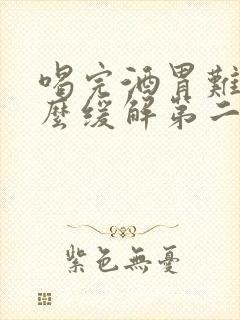 喝完酒胃難
麼緩解第二
紫色無憂